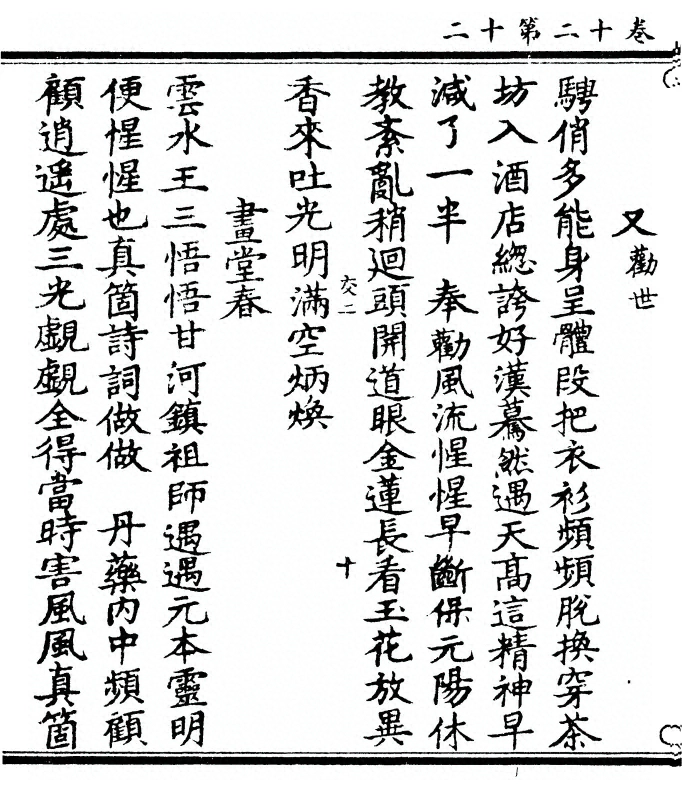 卷十二第十二
又勸世
騁俏多能身呈體段把衣衫頻頻脫換穿茶
坊入酒店緫誇好漢驀然遇天高這精神早
減了一半　奉勸風流惺惺早斷保元陽休
教紊亂稍迴頭開道眼金蓮長看玉花放異
交二
十
香來吐光明滿空炳煥
畫堂春
雲水王三悟悟甘河鎮祖師遇遇元本靈明
便惺惺也真箇詩詞做做　丹藥內中頻顧
顧逍遥處三光覷覷全得當時害風風真箇